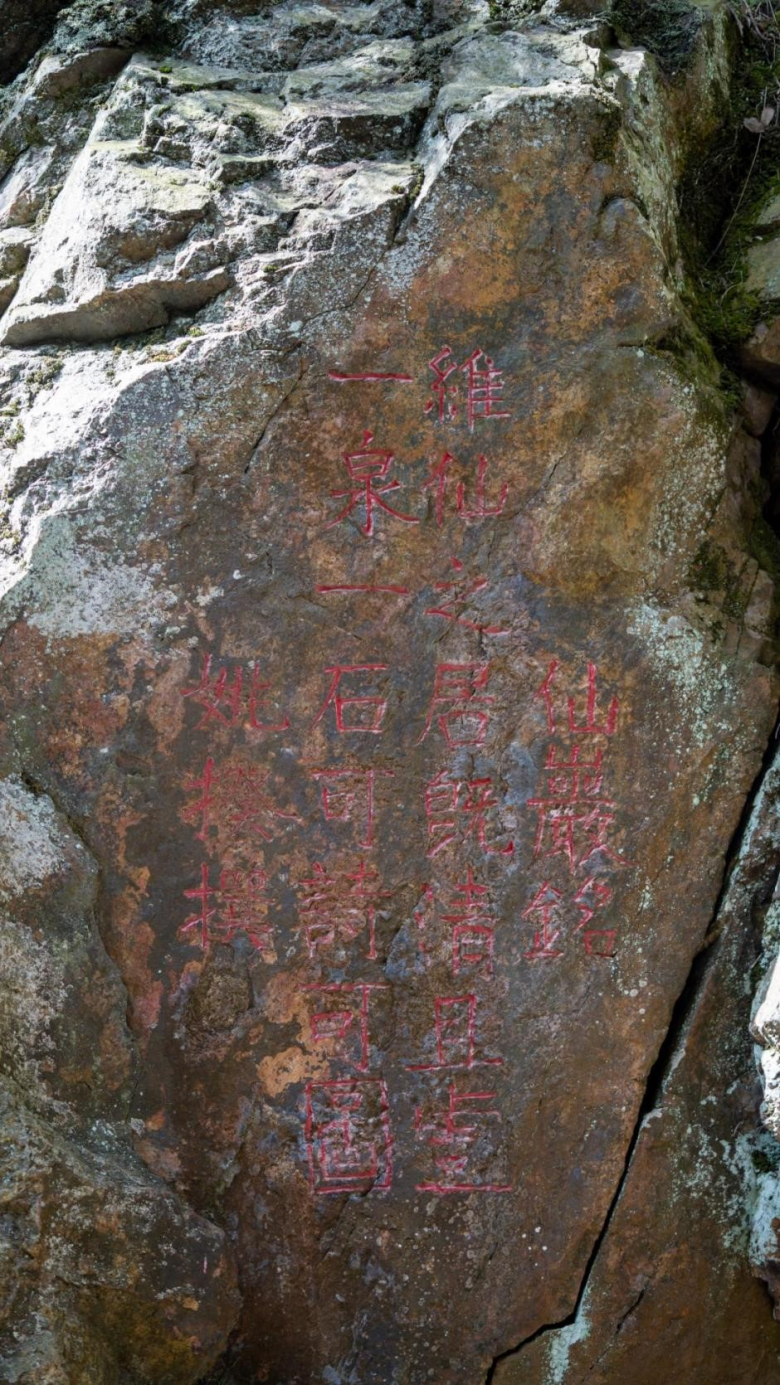 仙巖銘
維仙之居既清且虚
一泉一石可詩可圖
姚揆撰